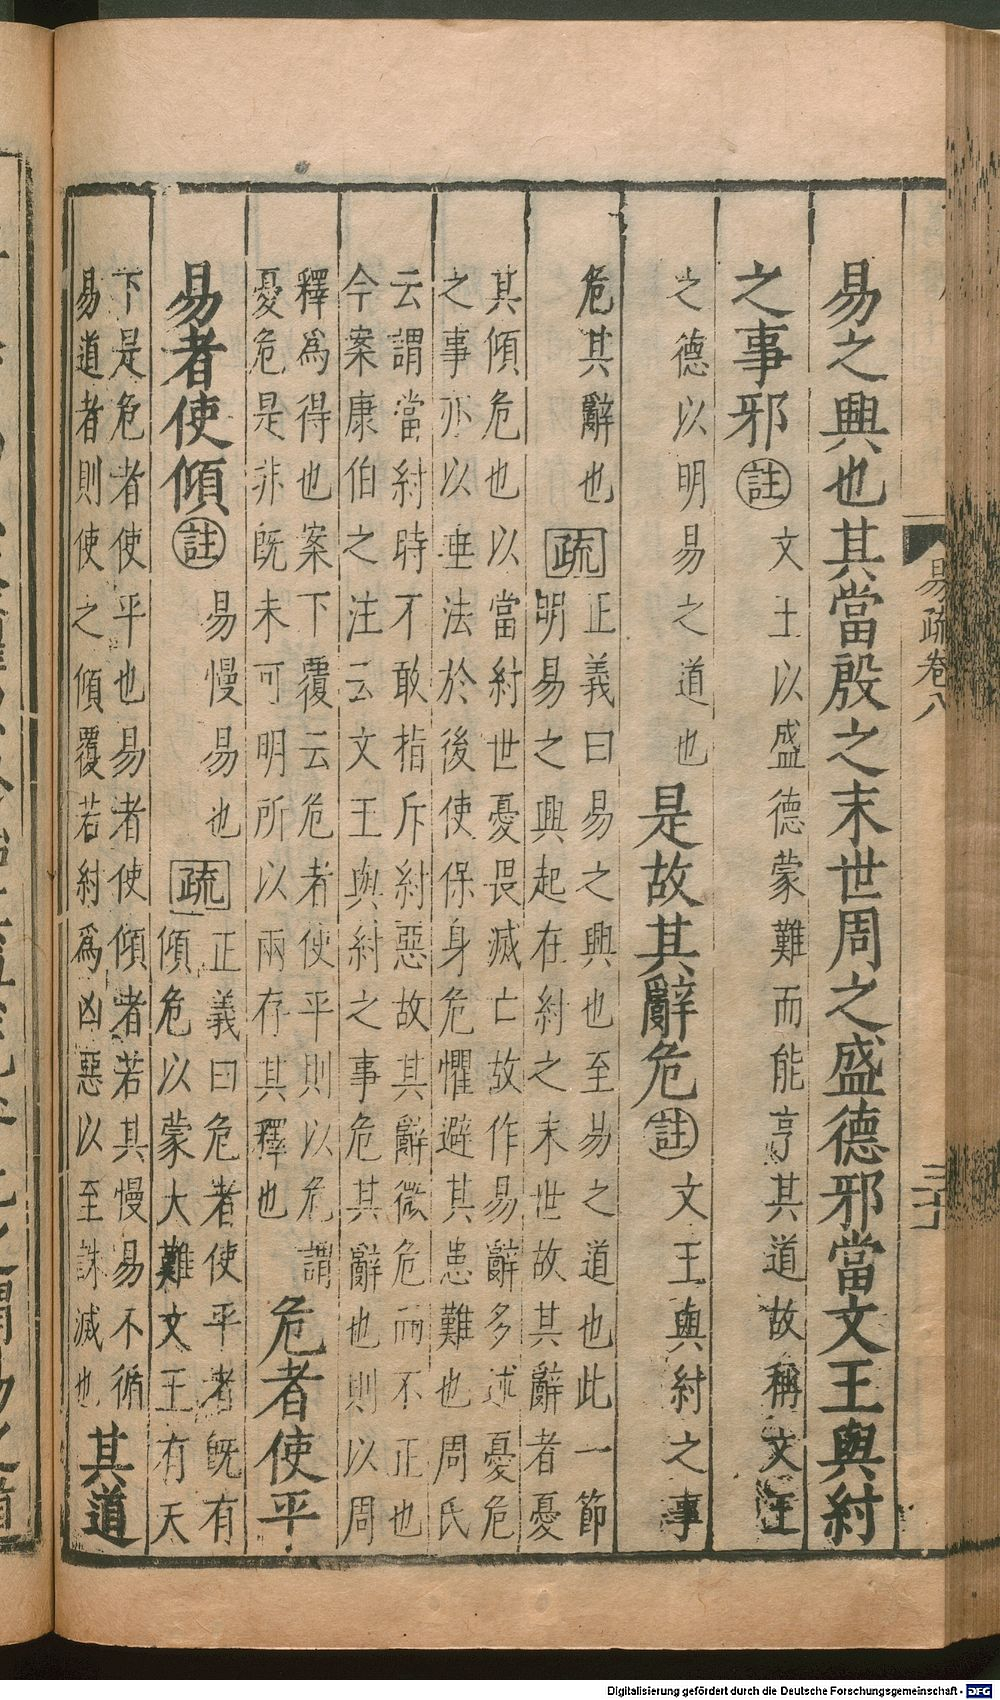 易之興也其當殷之末世周之盛德邪當文王與紂
之事邪註文王以盛德蒙難而能亨其道故稱文王
之德以明易之道也是故其辭危註文王與紂之事
危其辭也疏正義曰易之興也至易之道也此一節
明易之興起在紂之末世故其辭者憂
其傾危也以當紂世憂畏滅亡故作易辭多述憂危
之事亦以垂法於後使保身危懼避其患難也周氏
云謂當紂時不敢指斥紂惡故其辭微危而不正也
今案康伯之注云文王與紂之事危其辭也則以周
釋爲得也案下覆云危者使平則以危謂
憂危是非既未可明所以兩存其釋也危者使平
易者使傾註易慢易也疏正義曰危者使平者既有
傾危以蒙大難文王有天
下是危者使平也易者使傾者若其慢易不循
易道者則使之傾覆若紂爲凶惡以至誅滅也其道
易疏卷八
三十
Digitalisierung gefördert durch die Deutsche Forschungsgemeinschaft - DFG